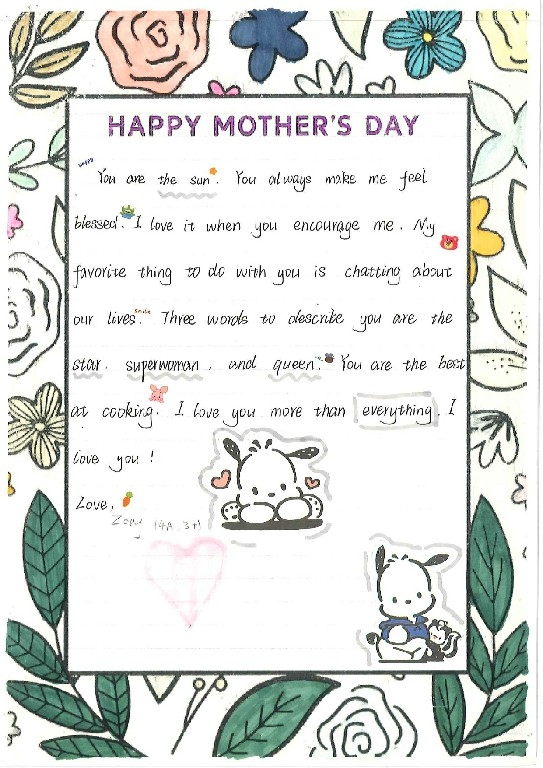 HAPPY MOTHER'S DAY
You are the sun. You always make me feel
blessed. I love it when you encourage me. My
favorite thing to do with you is chatting about
our lives. Three words to describe you are the
star, superwoman, and queen. You are the best
at cooking. I love you more than everything. I
love you!
Love,